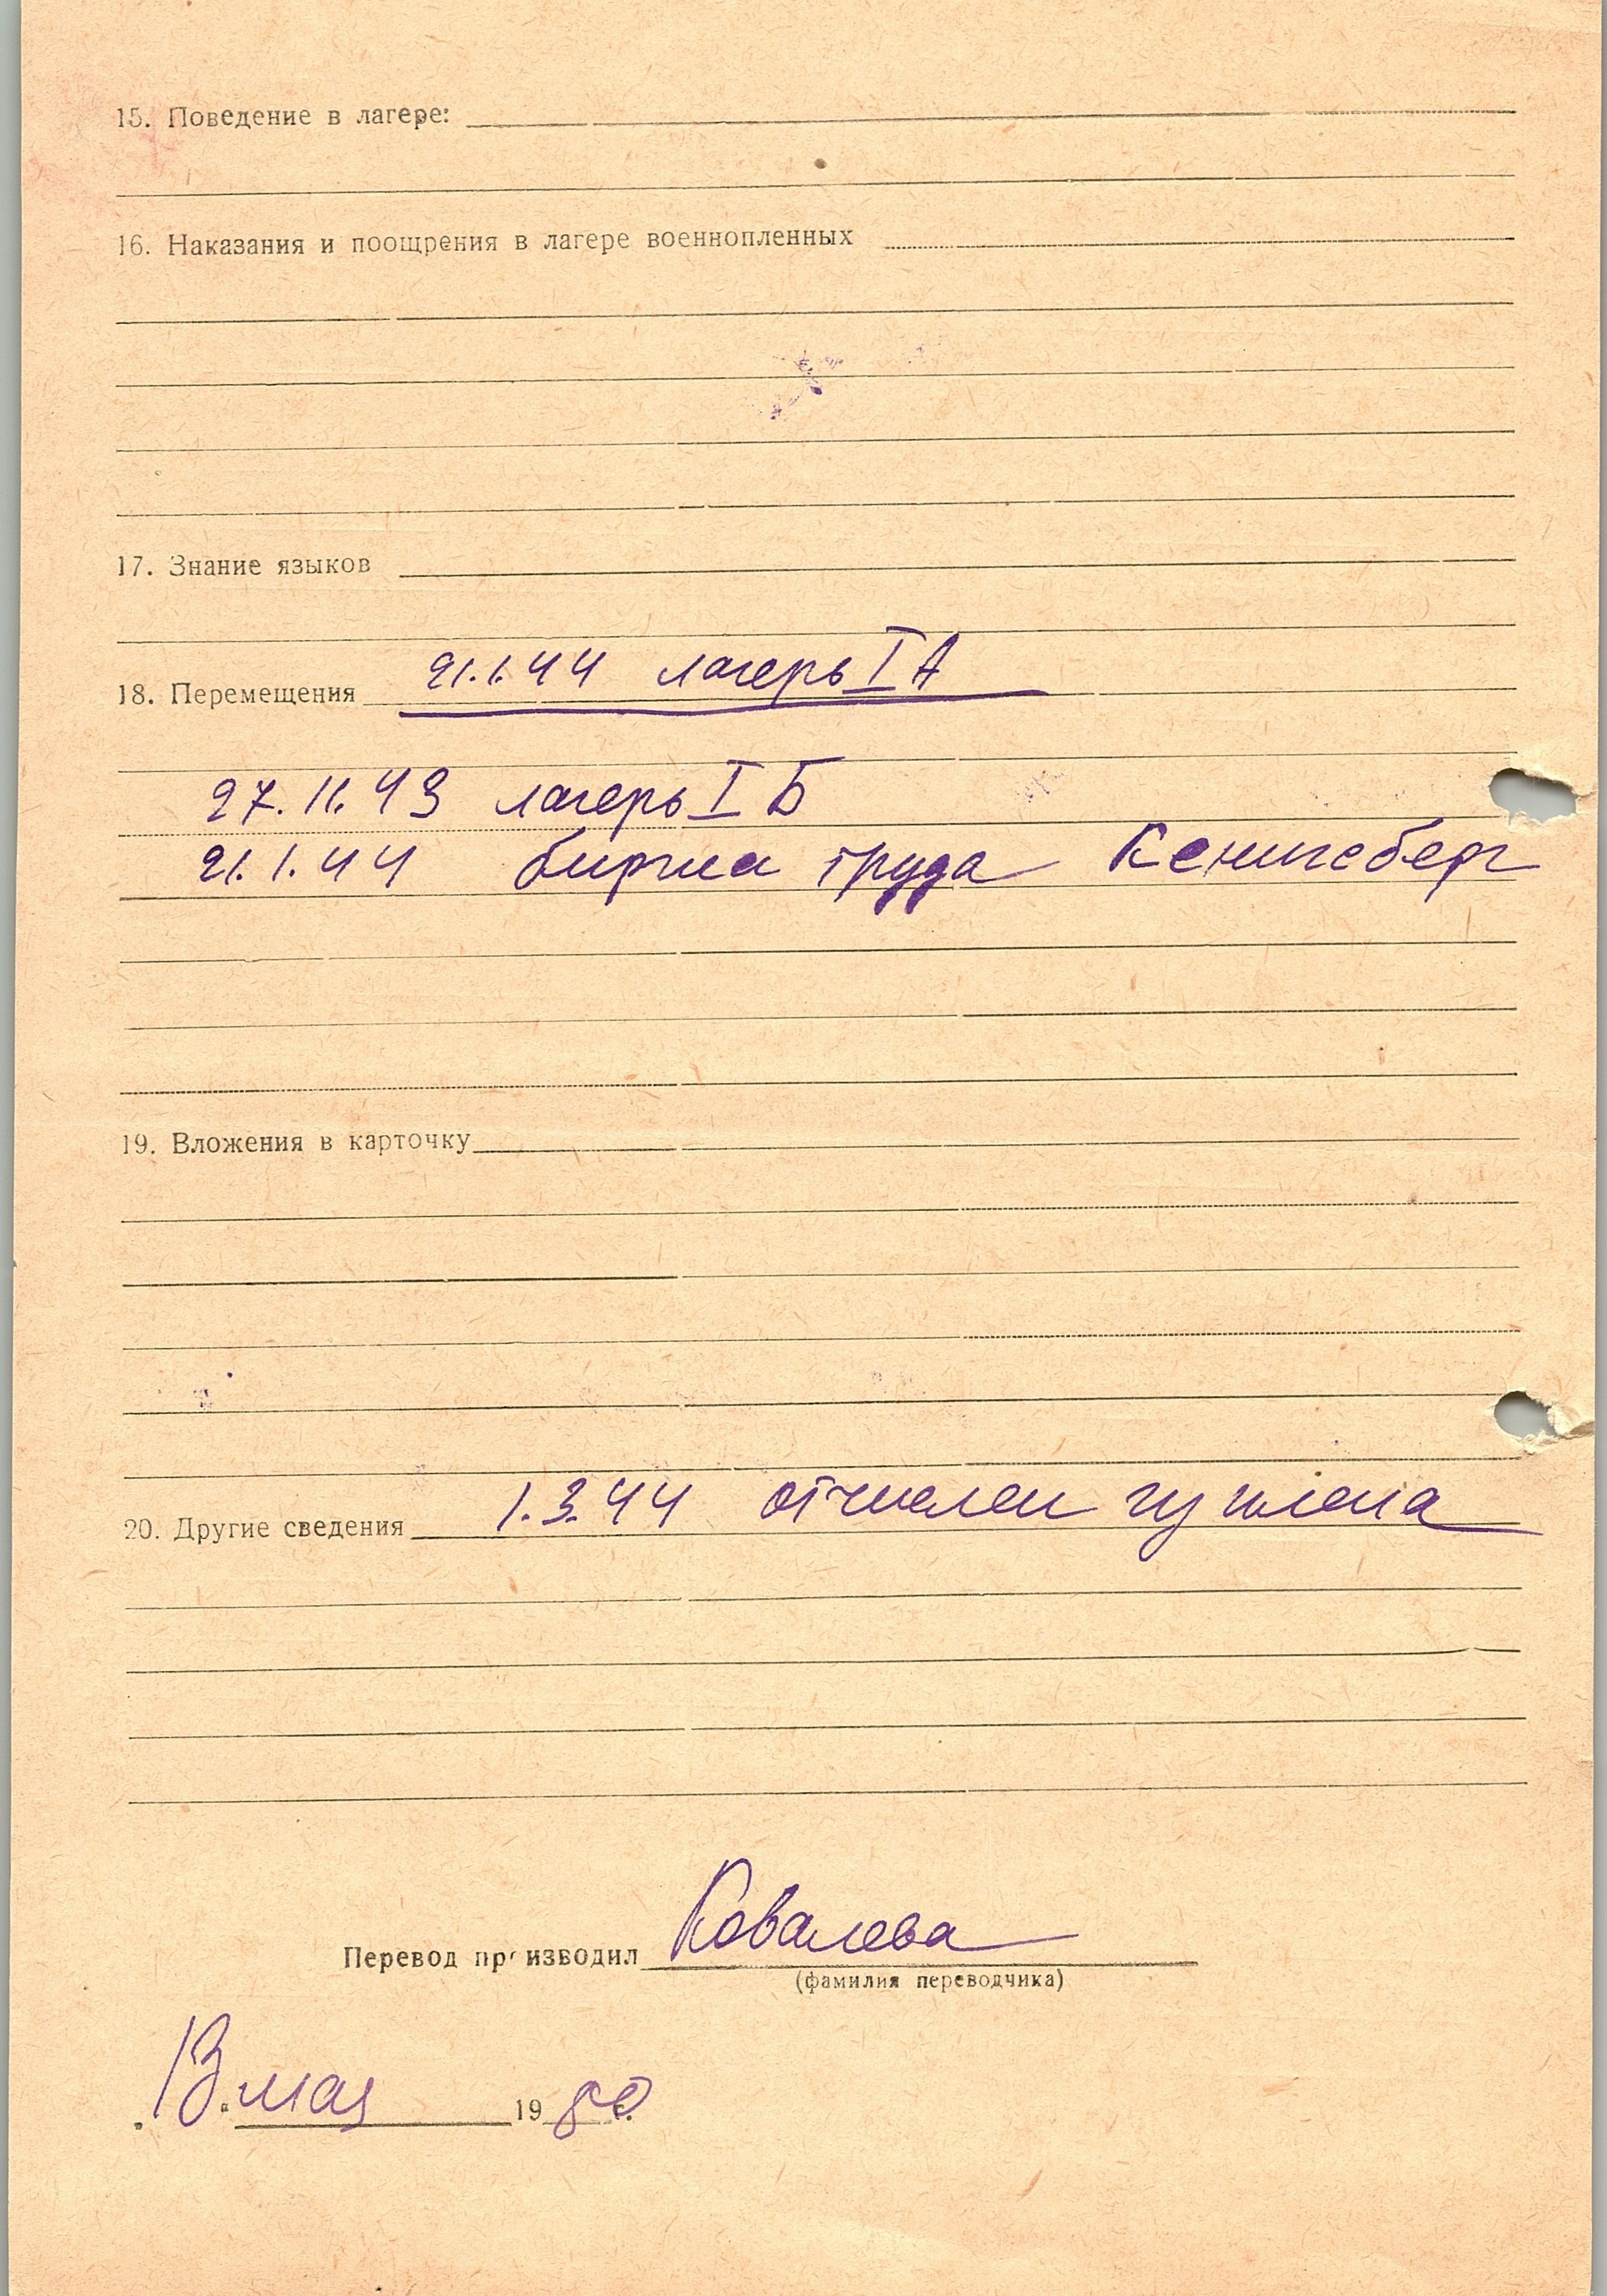 15. Поведение в лагере:
16. Наказания и поощрения в лагере военнопленных
17. Знание языков
18. Перемещения 21.1.44 лагерь I А
27.11.43 лагерь I Б
21.1.44 биржа труда Кенигсберг
19. Вложения в карточку
20. Другие сведения 1.3.44 отчислен из плена
Перевод производил Ковалева
(фамилия переводчика)
„13“ мая 1980 г.